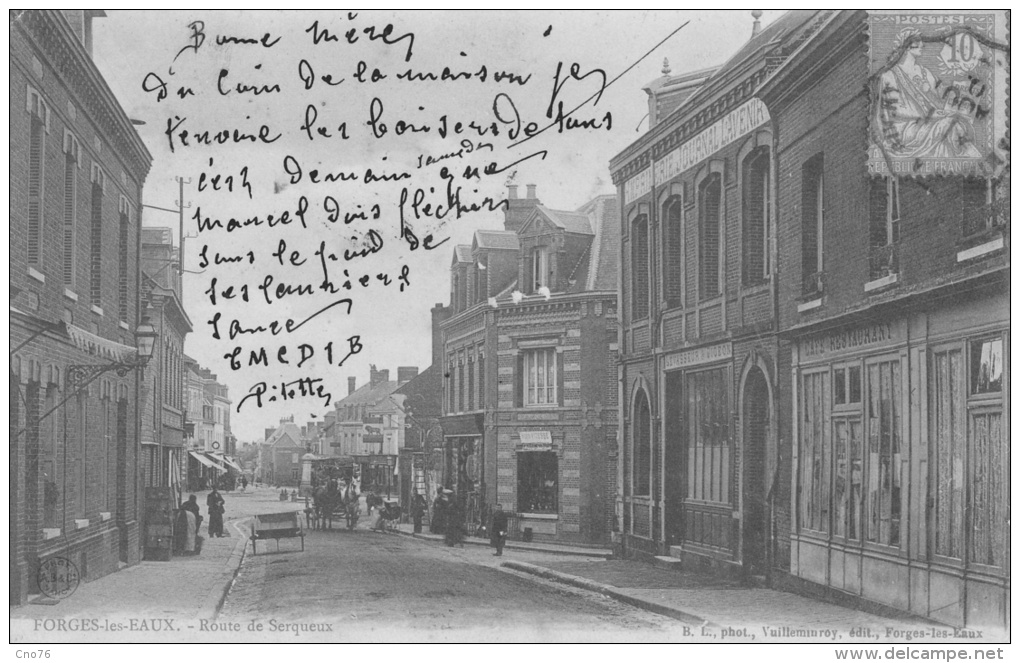 Bonne Mère,
Du Coin de la maison je
t'envoie les baisers de tous
c'est demain samedi que
Marcel dois fléchir
sous le poid de
ses lauriers
POSTES
10
RÉPUBLIQUE FRANÇAISE
IMPRIMERIE JOURNAL L'AVENIR
CAFÉ RESTAURANT
FORGES-les-EAUX. - Route de Serqueux
B. L., phot., Vuilleminroy, édit., Forges-les-Eaux
Cno76
www.delcampe.net